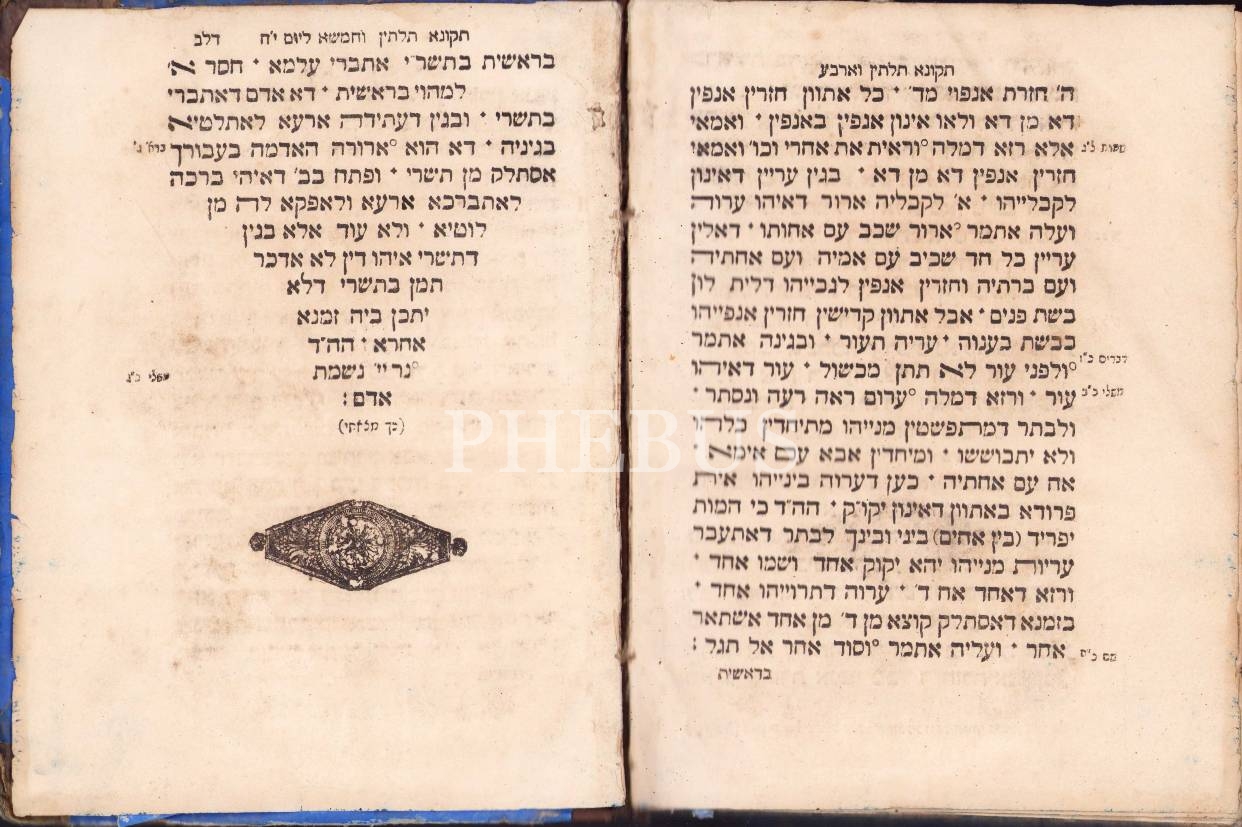 תקונא תלתין וארבע
ה׳ חזרת אנפוי מד׳ • כל אתוון חזרין אנפין
דא מן דא ולאו אינון אנפין באנפין • ואמאי
אלא רזא דמלה °וראית את אחרי וכו׳ ואמאי
שמות ל"ג
חזרין אנפין דא מן דא • בגין עריין דאינון
לקבלייהו • א׳ לקבליה ארור דאיהו ערוה
ועלה אתמר °ארור שכב עם אחותו • דאלין
עריין כל חד שכיב עם אמיה ועם אחתיה
ועם ברתיה וחזרין אנפין לגבייהו דלית לון
בשת פנים • אבל אתוון קדישין חזרין אנפייהו
בבשת בענוה • עריה תעור • ובגינה אתמר
דברים כ"ז
°ולפני עור לא תתן מכשול • עור דאיהו
עור • ורזא דמלה °ערום ראה רעה ונסתר •
משלי כ"ב
ולבתר דמתפשטין מנייהו מתיחדין כלהו
ולא יתבוששו • ומיחדין אבא עם אימא •
אח עם אחתיה • כען דערוה בינייהו אית
פרודא באתוון דאינון יקו״ק • הה״ד כי המות
יפריד (בין אחים) ביני ובינך לבתר דאתעבר
עריות מנייהו יהא יקוק אחד ושמו אחד •
ורזא דאחד אח ד׳ • ערוה דתרוייהו אחד •
בזמנא דאסתלק קוצא מן ד׳ מן אחד אשתאר
אחר • ועליה אתמר °וסוד אחר אל תגל :
שם כ"ה
בראשית
תקונא תלתין וחמשא ליום י"ח דלב
בראשית בתשר״י אתברי עלמא • חסר א׳
למהוי בראשית • דא אדם דאתברי
בתשרי • ובגין דעתידה ארעא לאתלטיא
בגיניה • דא הוא °ארורה האדמה בעבורך
ברא׳ ג׳
אסתלק מן תשרי • ופתח בב׳ דאיהי ברכה
לאתברכא ארעא ולאפקא לה מן
לוטיא • ולא עוד אלא בגין
דתשרי איהו דין לא אדכר
תמן בתשרי דלא
יתכן ביה זמנא
אחרא • הה״ד
°נר יי׳ נשמת
משלי כ"ג
אדם :
(כך מלאתי)
PHEBUS